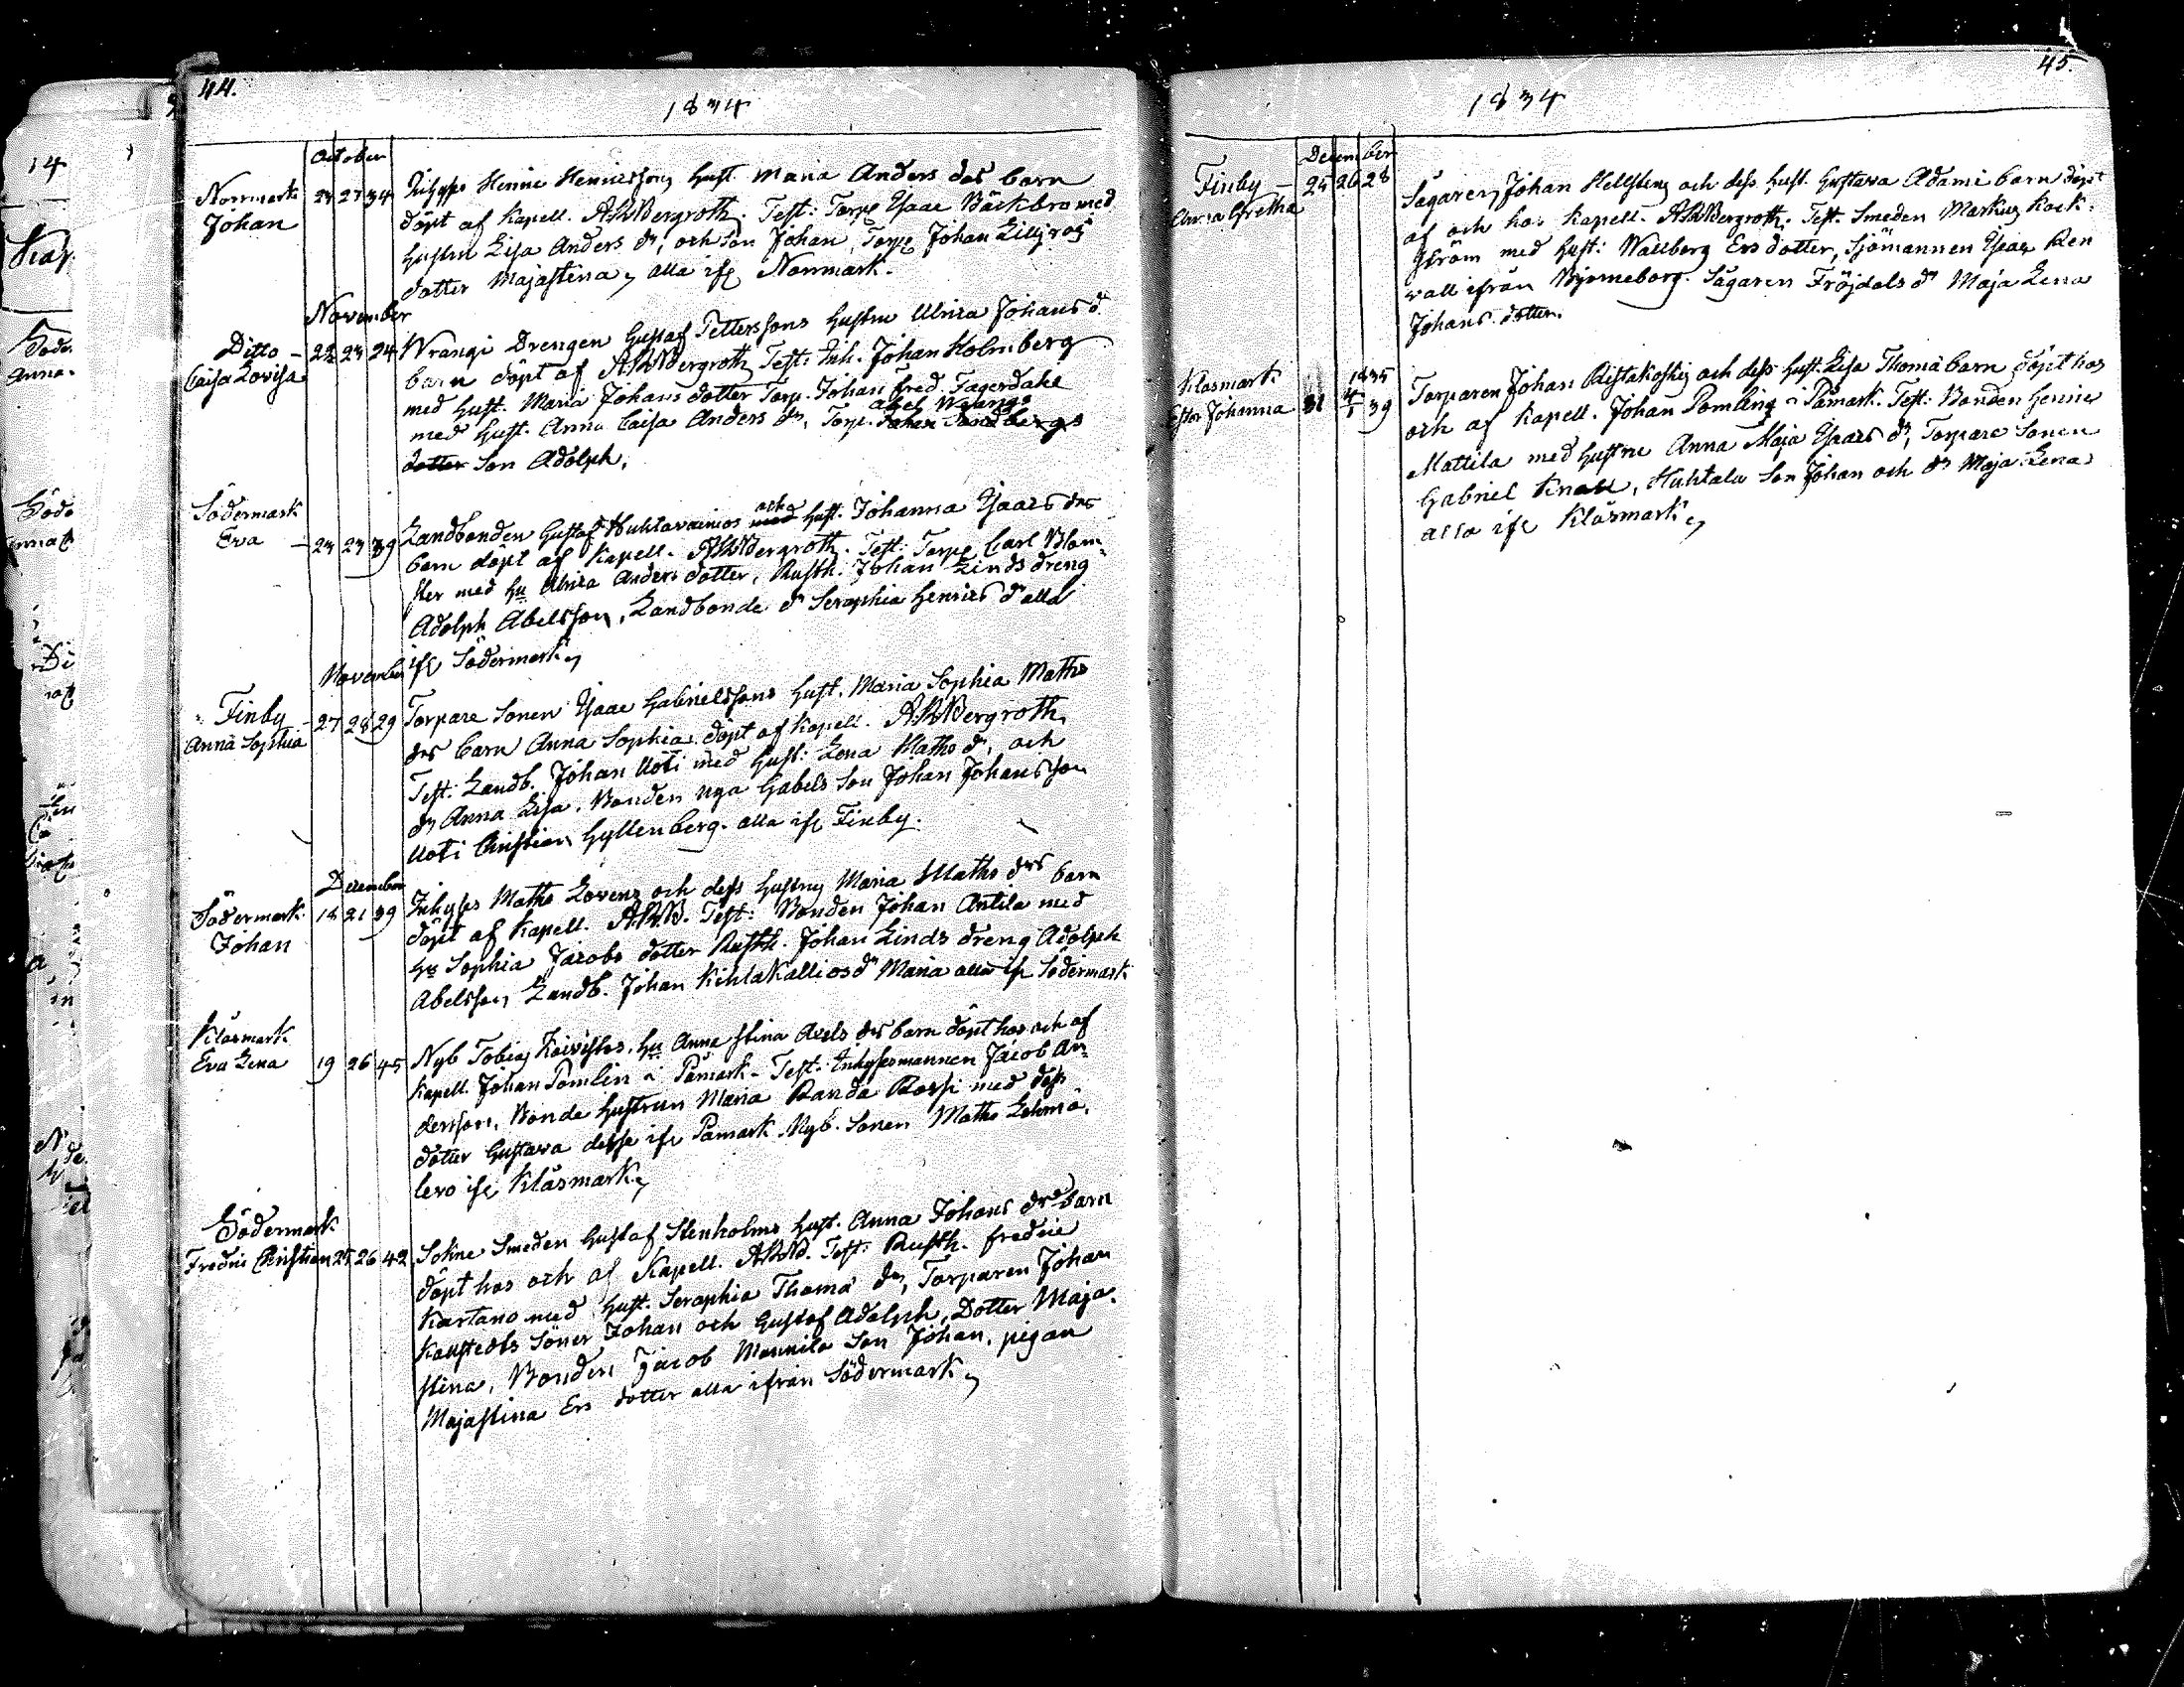 44.
1834
October
Norrmark 24 27 34 Inhyses Henric Henricssons Hust. Maria Anders drs barn
Johan döpt af Kapell. AWBergroth. Test: Torp. Isaac Bäckbro med
hustru Lisa Anders dr, och Son Johan, Torp. Johan Liljeros
dotter Majastina, alla ifr. Norrmark.
November
Ditto - 22 23 24 Wrangi Drengen Gustaf Pettersons Hustru Ulrica Johans d.
Caisa Lovisa barn döpt af AWBergroth Test: Inh. Johan Holmberg
med Hust. Maria Johans dotter Torp. Johan Fred. Fagerdahl
med Hust. Anna Caisa Anders dr, Torp. Johan Sandbergs
Abel Wrangs
dotter Son Adolph.
Södermark
Eva - 23 23 39 Landbonden Gustaf Huhtavainios med Hust. Johanna Isaacs drs
och
barn döpt af Kapell. AWBergroth. Test: Torp. Carl Blom-
ster med Hu Ulrica Anders dotter, Rusth. Johan Linds dreng
Adolph Abelsson, Landbonde dr Seraphia Henrics d alla
ifr Södermark
November
Finby - 27 28 29 Torpare Sonen Isaac Gabrielssons Hust. Maria Sophia Maths
Anna Sophia drs barn Anna Sophia döpt af Kapell. AWBergroth
Test: Landb. Johan Uoti med Hust: Lena Maths dr, och
dr Anna Lisa. Bonden Nya Gabels Son Johan Johansson
Uoti Christian Gyllenberg. alla ifr Finby.
December
Södermark 18 21 39 Inhyses Maths Lovens och dess Hustru Maria Maths drs barn
Johan döpt af Kapell. AWB. Test: Bonden Johan Antila med
Hu Sophia Jacobs dotter Rusth. Johan Linds dreng Adolph
Abelsson, Landb. Johan Kihlakallios dr Maria alla ifr Södermark
Klåsmark
Eva Lena 19 26 45 Nyb Tobias Koivistos, Hu Anna Stina Axels drs barn döpt hos och af
Kapell. Johan Pomlin i Påmark - Test: Inhysesmannen Jacob An-
dersson, Bonde Hustrun Maria Randa Rossi med dess
dotter Gustava desse ifr Påmark. Nyb. Sonen Maths Lehmä-
levo ifr Klåsmark
Södermark
Fredric Christian 25 26 42 Sokne Smeden Gustaf Stenholms Hust. Anna Johans drs barn
döpt hos och af Kapell. AWB. Test: Rusth. Fredric
Kartano med Hust. Seraphia Thoma dr, Torparen Johan
Kallstedts Söner Johan och Gustaf Adolph, Dotter Maja-
stina, Bonden Jacob Mannila Son Johan, pigan
Majastina Ers dotter alla ifrån Södermark
45.
1834
December
Finby - 25 26 28 Sågaren Johan Hellsten och dess Hust. Gustava Adami barn döpt
Anna Gretha af och hos Kapell. AWBergroth. Test. Smeden Markus Kock-
ström med Hust: Wallberg Ers dotter, Sjömannen Isaac Ren
vall ifrån Björneborg. Sågaren Fröjdals dr Maja Lena
Johans dotter.
1835
Klåsmark
Ester Johanna 31 4/1 39 Torparen Johan Ristakoski och dess Hust. Lisa Thoma barn döpt hos
och af Kapell. Johan Pomling i Påmark. Test: Bonden Henric
Mattila med hustru Anna Maja Isaacs dr, Torpare Sonen
Gabriel Knall, Huhtala Son Johan och dr Maja Lena
alla ifr Klåsmark